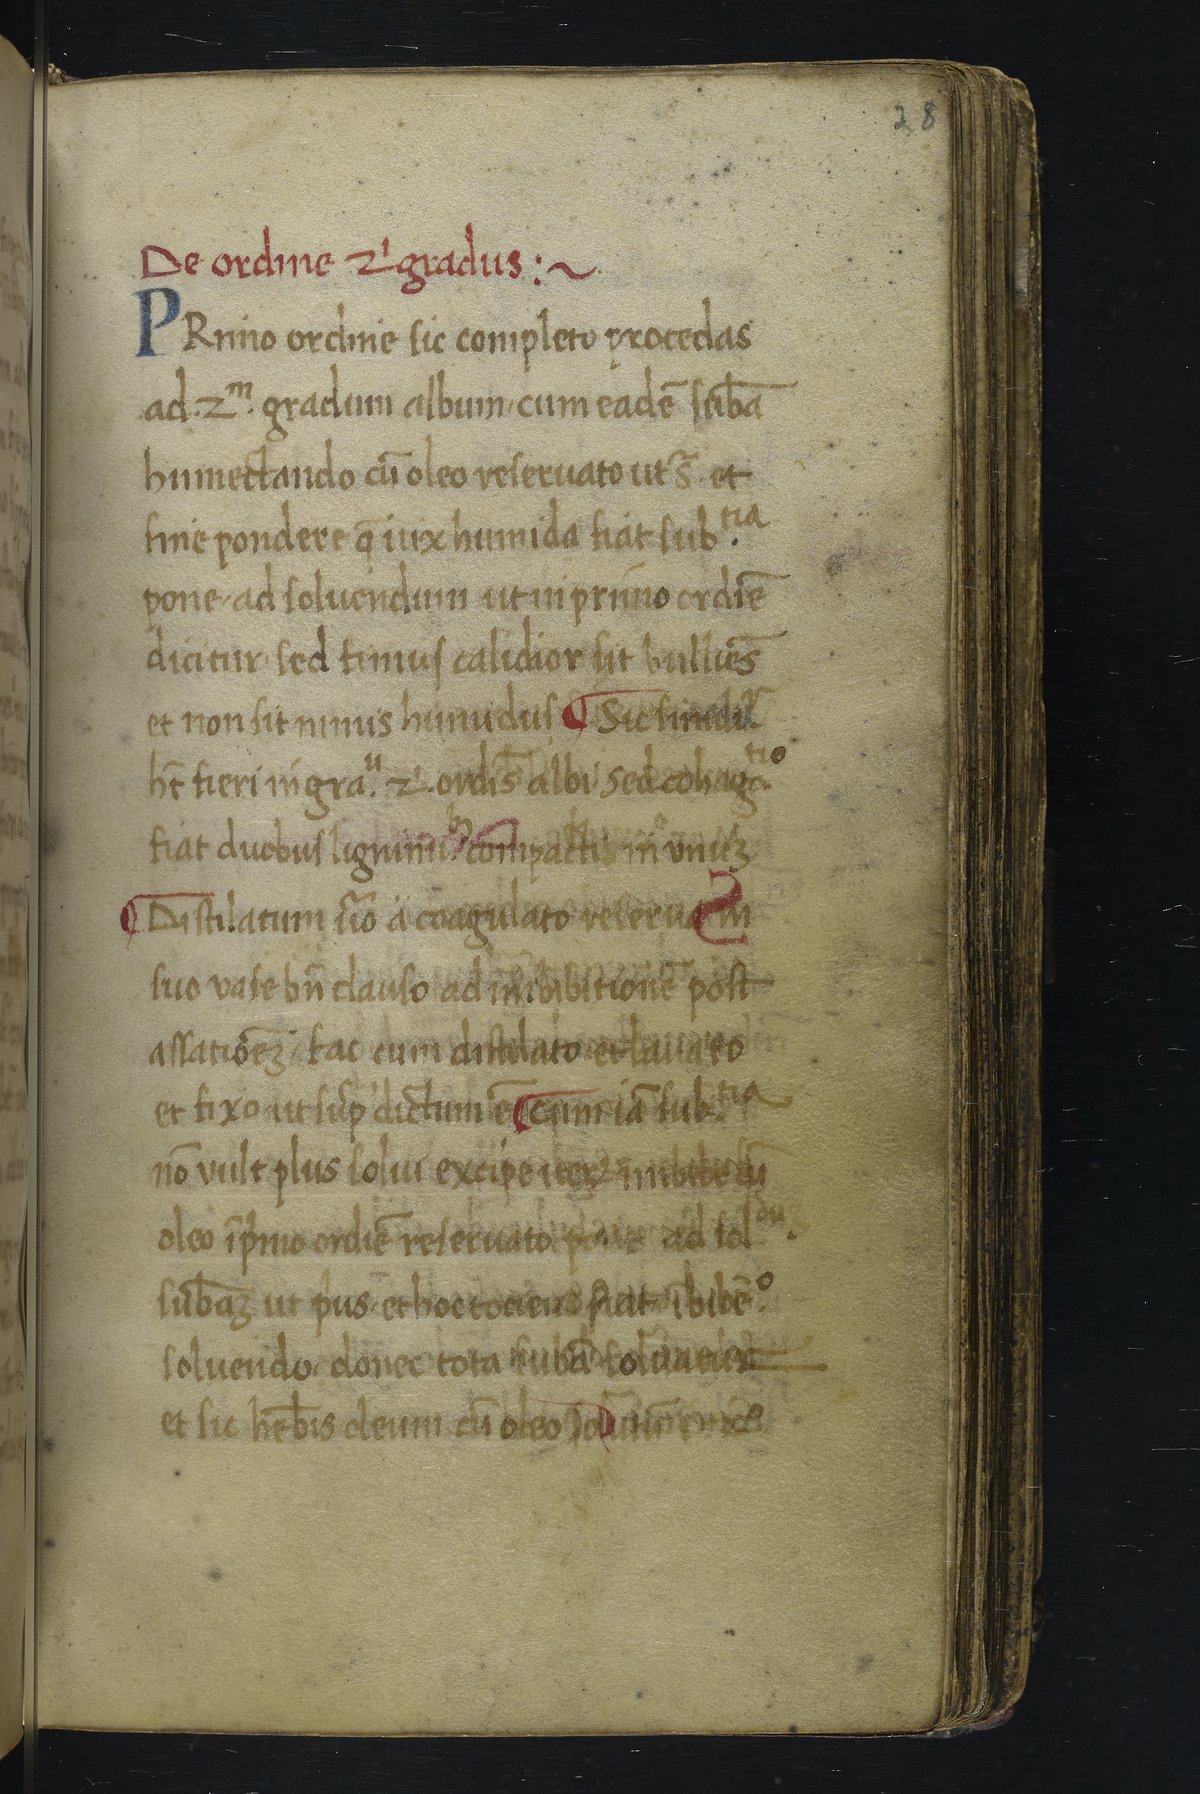 28
De ordine 2ⁱ gradus :~
PRimo ordine sic completo procedas
ad .2ᵐ. gradum album cum eadē sūbā
humectando cū oleo reservato ut s̄ et
sine pondere q̄ iux humida fiat sub.ᵗⁱᵃ
pone ad solvendum ut in primo ordiē
dicitur sed fimus calidior sit bulliēs
et non sit nimis humidus Sic
hēt fieri in gra.ᵘ 2ⁱ. ordīs albi sed cohag.ᵗⁱᵒ
fiat duobus compactis
Distilatum v̄o a coagulato reserva in
suo vase bn̄ clauso ad imbibitionē post
assatiōeꝫ fac cum distilato et
et fixo ut sup̄ dictum ē cum iā sub.ᵗⁱᵃ
nō vult plus solvi excipe imbibe cū
oleo ī p̄mo ordiē reservato pone ad sol
sūbāꝫ ut p̄us et hoc tociens fiat ībibē.ᵒ
solvendo donec tota sūbā
et sic hēbis oleum cū oleo